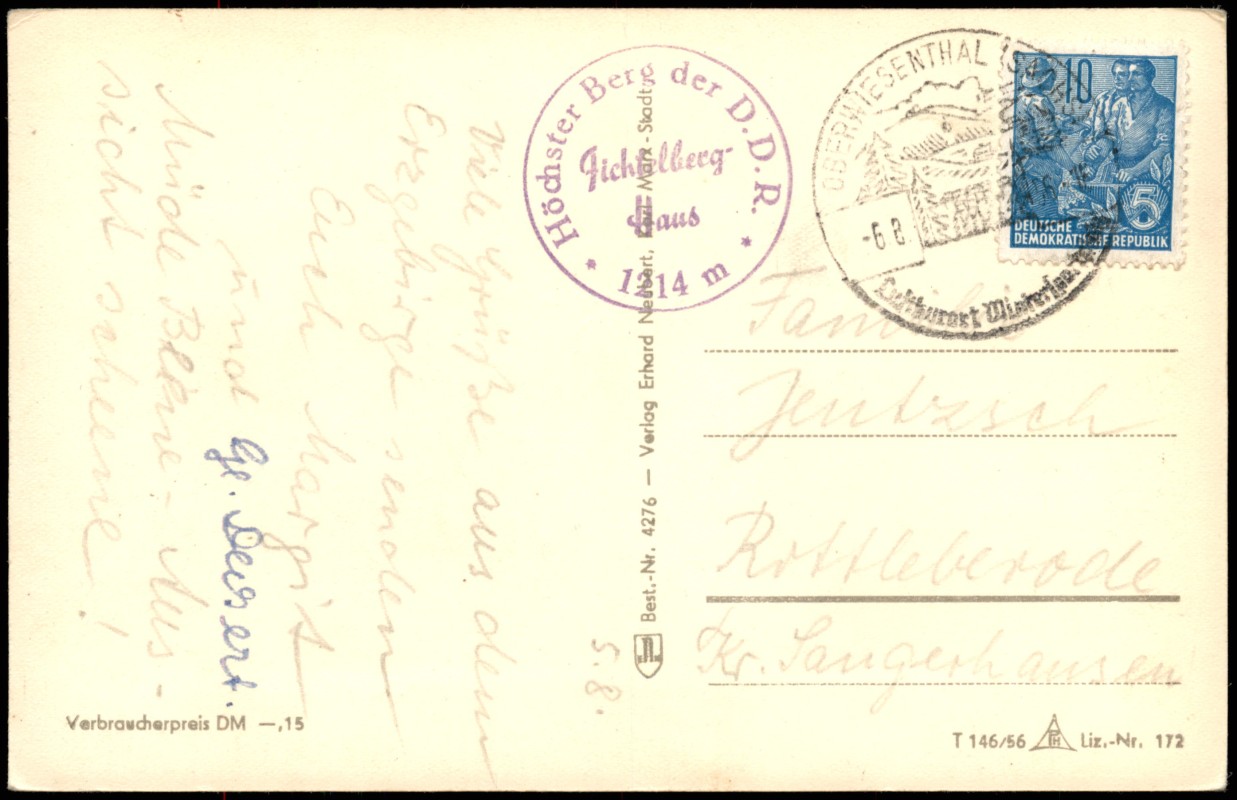 Viele Grüße aus dem
Erzgebirge senden
Euch Margit
und
Müde Beine - Aus-
sicht scheene!
5.8.
Höchster Berg der D.D.R.
Fichtelberg-
Haus
* 1214 m *
Best.-Nr. 4276 — Verlag Erhard Neubert, Karl-Marx-Stadt
OBERWIESENTHAL
-6.8.
Luftkurort
10
5
DEUTSCHE
DEMOKRATISCHE REPUBLIK
Familie
Jentzsch
Rottleberode
Kr. Sangerhausen
Verbraucherpreis DM —,15
T 146/56 Liz.-Nr. 172